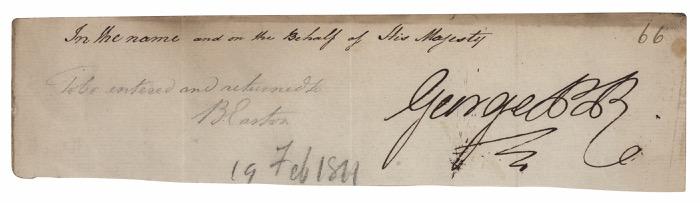 In the name and on the Behalf of His Majesty
66
To be entered and returned to
B. Easton
George P R
19 Feb 1811